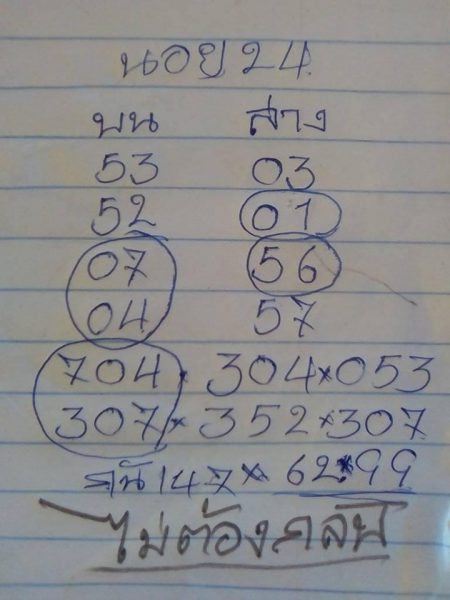 นอย 24
บน ล่าง
53 03
52 01
07 56
04 57
704 × 304 × 053
307 × 352 × 307
147 × 62 × 99
ไม่ต้องกลับ